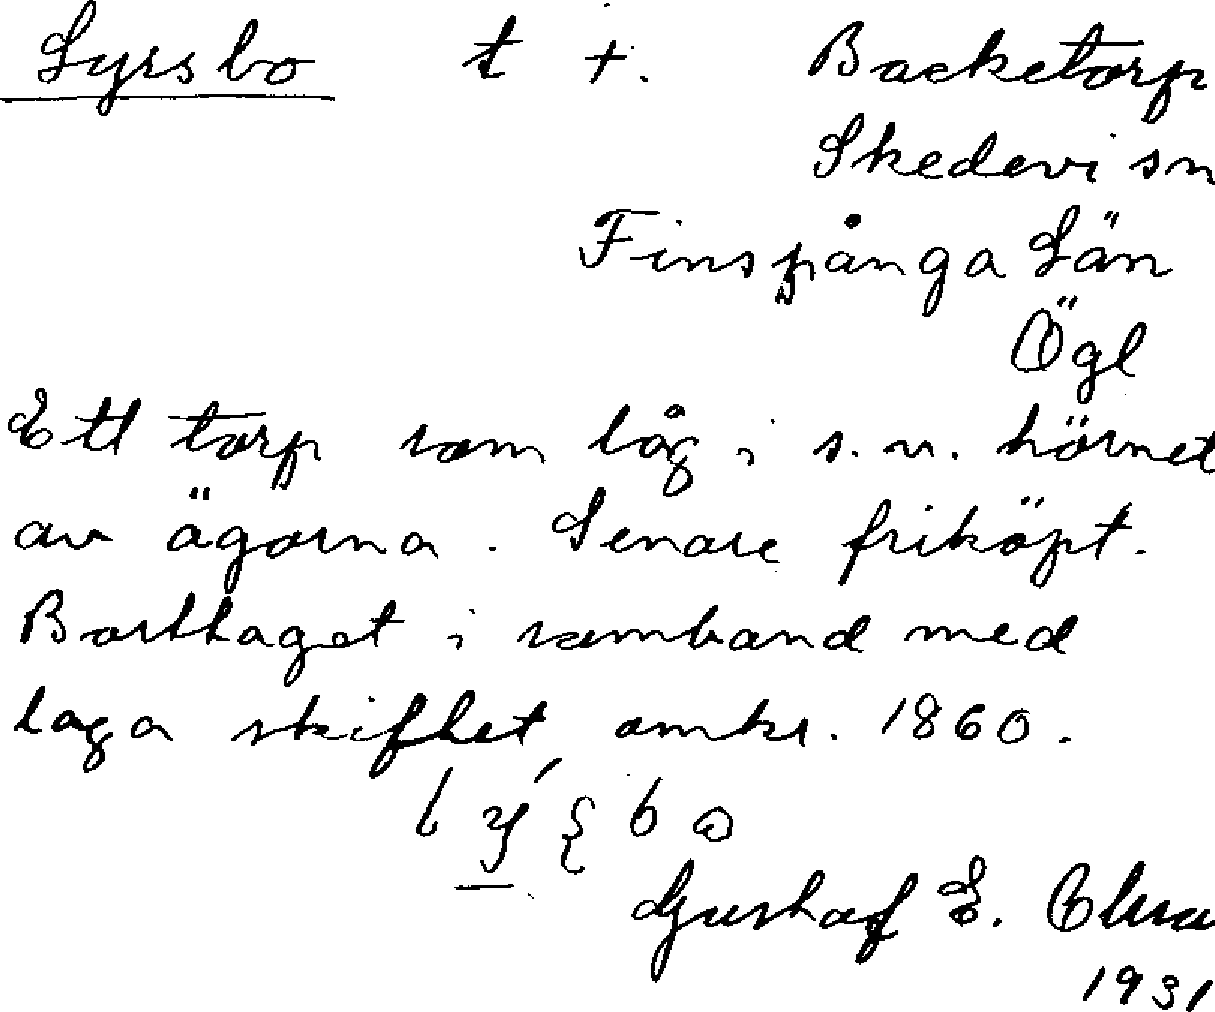 Lyrsbo t +. Backetorp
Skedevi sn
Finspånga Län
Ögl
Ett torp som låg i s.v. hörnet
av ägorna. Senare friköpt.
Borttaget i samband med
laga skiftet omkr. 1860.
Gustaf E.
1931